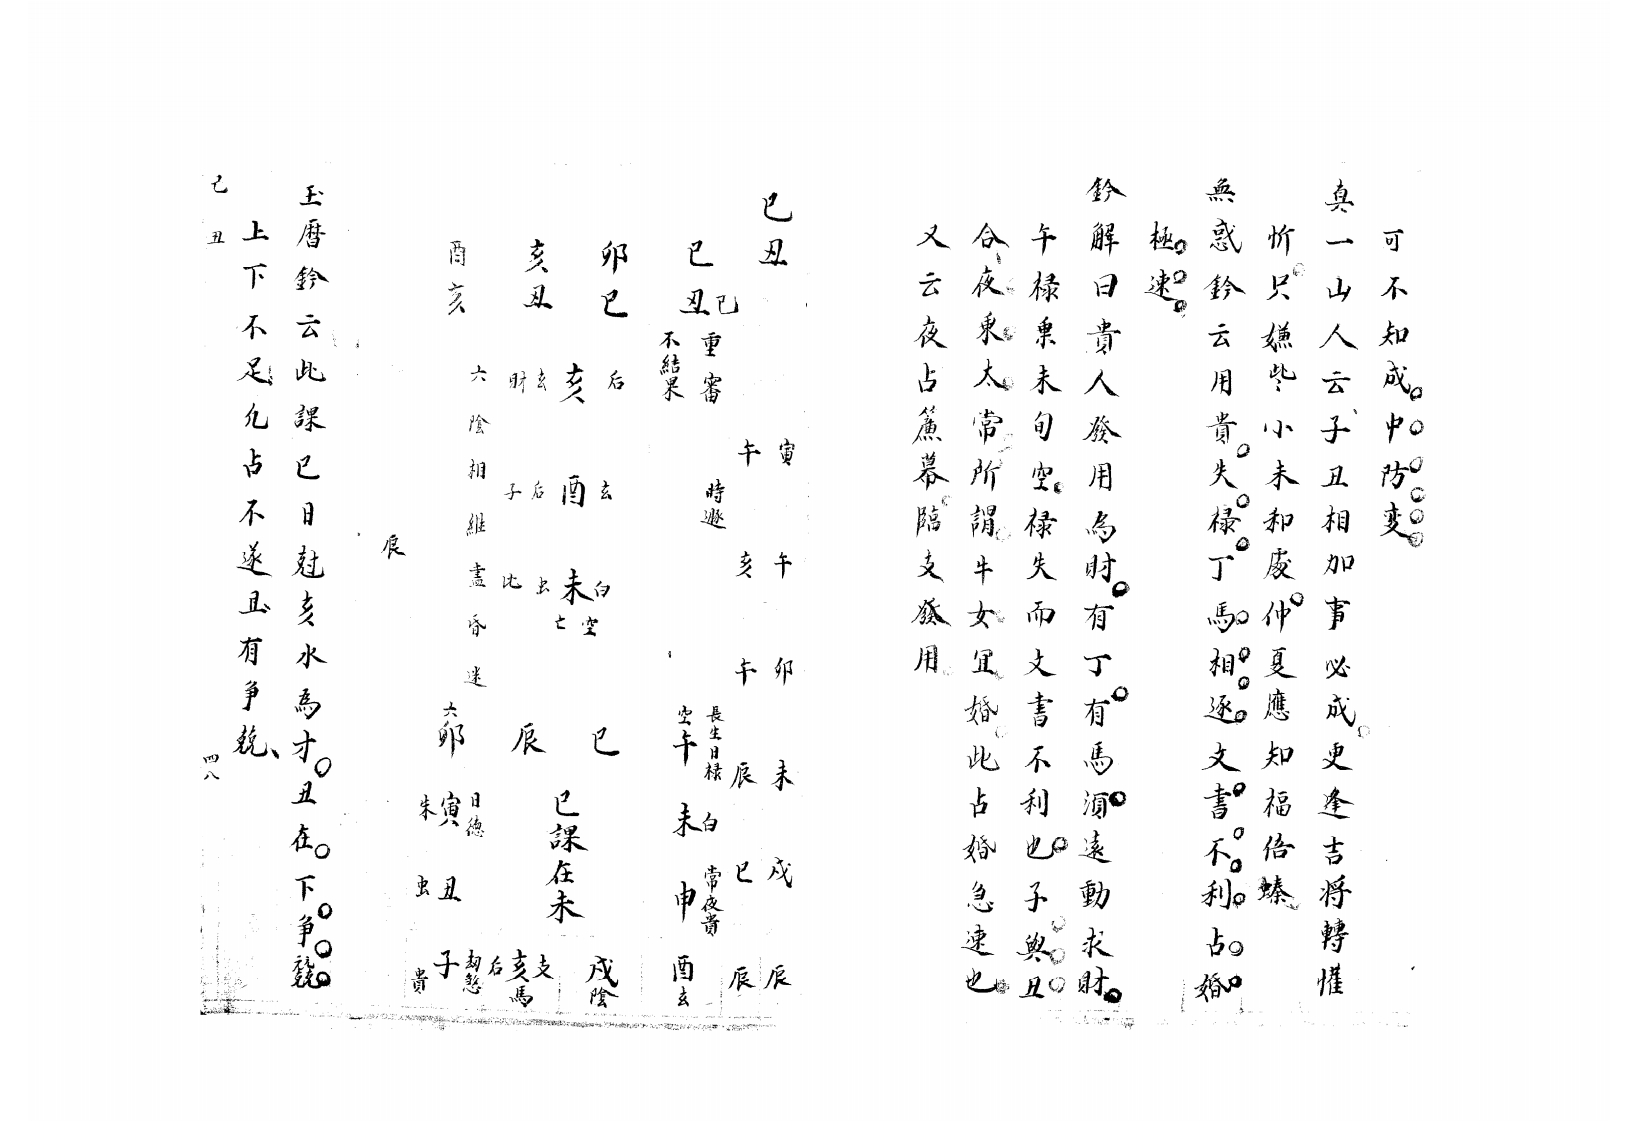 可不知成中防變
真一山人云子丑相加事必成更逢吉将轉懽
忻只嫌些小未和處仲夏應知福俻臻
無惑鈐云用貴失禄丁馬相逐文書不利占婚
極速
鈐解曰貴人發用為財有丁有馬須遠動求財
午禄乗未旬空禄失而文書不利也子與丑
合夜乗太常所謂牛女宜婚此占婚急速也
又云夜占簾幕臨支發用
己丑
寅 午 卯 未 戌 辰
午 亥 午 辰 巳 辰
時遯
巳丑己
重審
不結果
長生日禄
空午 未白 申 常夜貴 酉玄
卯巳
亥丑
酉亥
后亥玄財
玄酉后子
白未虫比
空亡
六陰相継盡昏迷
巳 辰 卯六
戌陰
巳課在未
日德寅朱
丑虫
支亥馬后
劫煞子貴
辰
玉暦鈐云此課巳日尅亥水為才丑在下争競
上下不足凡占不遂且有争競
己丑 四八